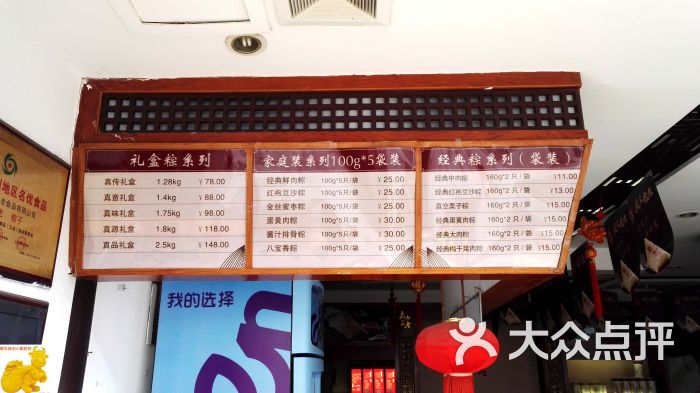 礼盒粽系列
真传礼盒 1.28kg ¥78.00
真意礼盒 1.4kg ¥88.00
真味礼盒 1.75kg ¥98.00
真源礼盒 1.8kg ¥118.00
真品礼盒 2.5kg ¥148.00
家庭装系列100g*5袋装
经典鲜肉粽 100g*5只/袋 ¥25.00
红袍豆沙粽 100g*5只/袋 ¥25.00
金丝蜜枣粽 100g*5只/袋 ¥25.00
蛋黄肉粽 100g*5只/袋 ¥30.00
酱汁排骨粽 100g*5只/袋 ¥30.00
八宝香粽 100g*5只/袋 ¥25.00
经典粽系列(袋装)
经典中肉粽 160g*2只/袋 ¥11.00
经典红袍豆沙粽 160g*2只/袋 ¥13.00
真空栗子粽 160g*2只/袋 ¥15.00
经典蛋黄肉粽 160g*2只/袋 ¥15.00
经典大肉粽 160g*2只/袋 ¥15.00
经典梅干菜肉粽 160g*2只/袋 ¥15.00
地区名优食品
粽子
我的选择
大众点评